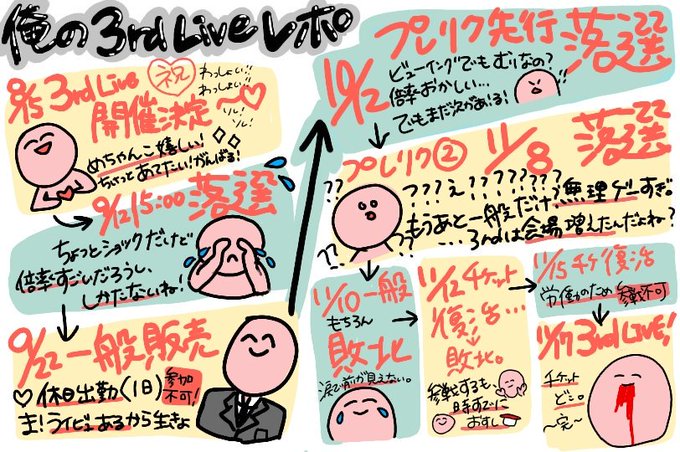 俺の3rd Liveレポ。
8/5 3rd Live
開催決定
祝
わっしょい!!
わっしょい!!
めちゃんこ嬉しい!
ちょっとあてたい!がんばる!
9/12 15:00 落選
ちょっとショックだけど
倍率すごいだろうし、
しかたないね!
9/22 一般販売
♡休日出勤(1日)
参加
不可!
ま!ライビュあるから生きよ
10/2 プレリク先行 落選
ビューイングでもむりなの?
倍率おかしい…
でもまだ次がある!
プレリク② 11/8 落選
???え????????
無理ゲーすぎ。
もうあと一般だけ、
…3rdは会場増えたんだよね?
11/10 一般
もちろん
敗北
涙で前が見えない。
11/12 チケット
復活…
→敗北。
参戦するも
時すでに
おすし
11/15 チケ復活
労働のため参戦不可
11/17 3rd LIVE!
チケット
どこ。
〜完〜